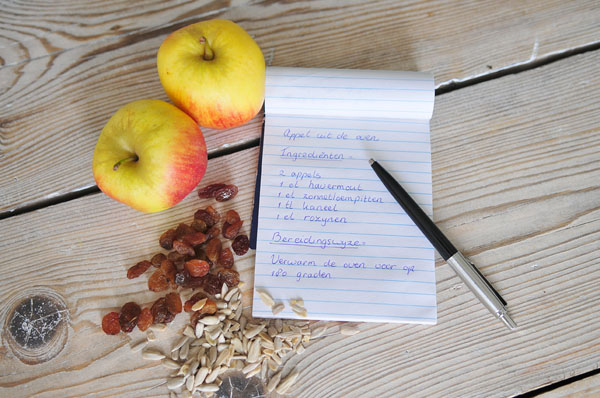 Appel uit de oven.
Ingrediënten =
2 appels
1 el havermout
1 el zonnebloempitten
1 tl kaneel
1 el rozynen
Bereidingswyze =
Verwarm de oven voor op
180 graden